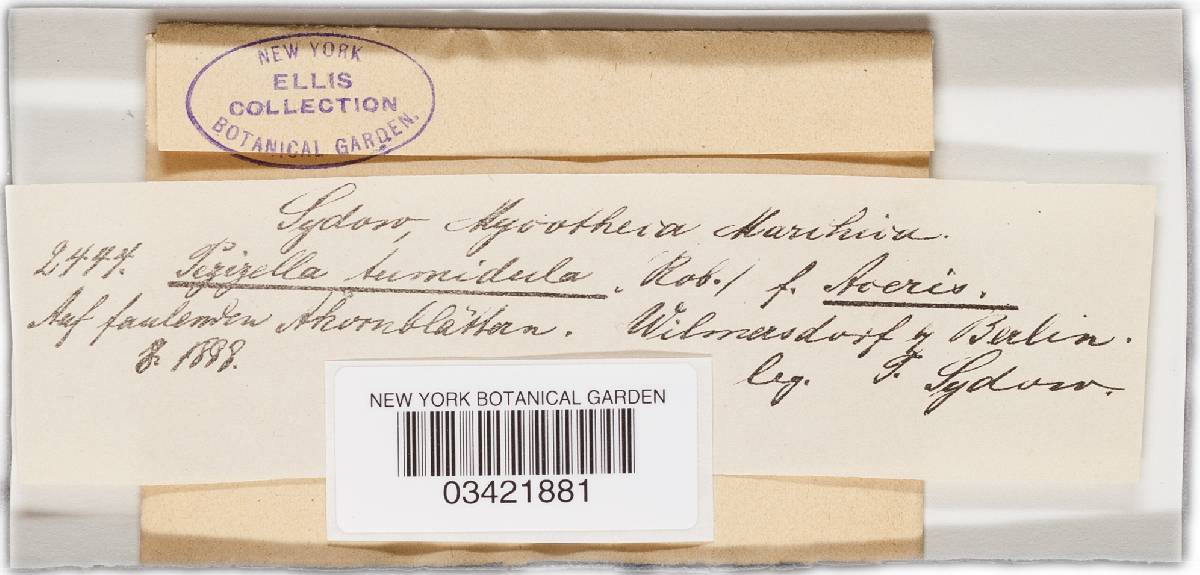 NEW YORK
ELLIS
COLLECTION
BOTANICAL GARDEN.
Sydow, Mycotheca Marchica.
2444. Pezizella tumidula (Rob.) f. Aceris.
Auf faulenden Ahornblättern. Wilmersdorf b Berlin.
8. 1888. leg. P. Sydow.
NEW YORK BOTANICAL GARDEN
03421881